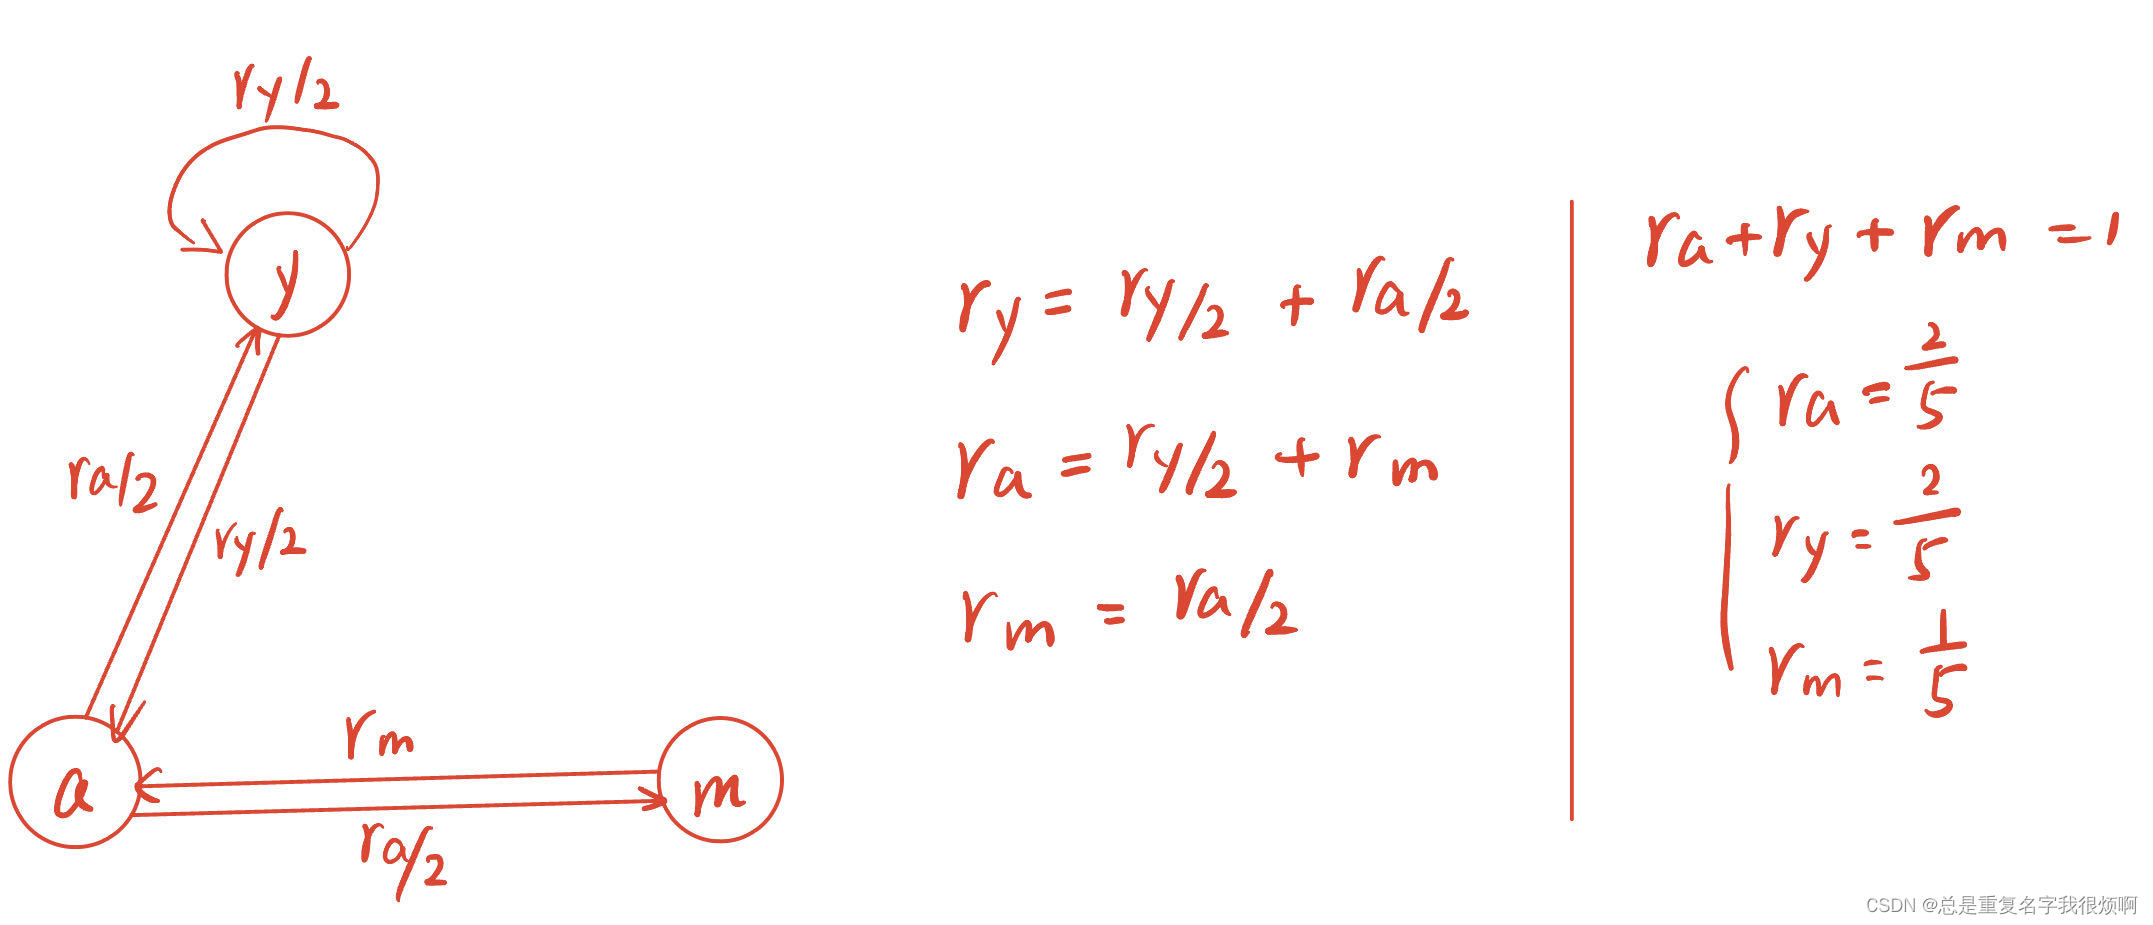 ry/2
y
ra/2
ry/2
a
rm
m
ra/2
ry = ry/2 + ra/2
ra = ry/2 + rm
rm = ra/2
ra + ry + rm = 1
ra = 2/5
ry = 2/5
rm = 1/5
CSDN @总是重复名字我很烦啊